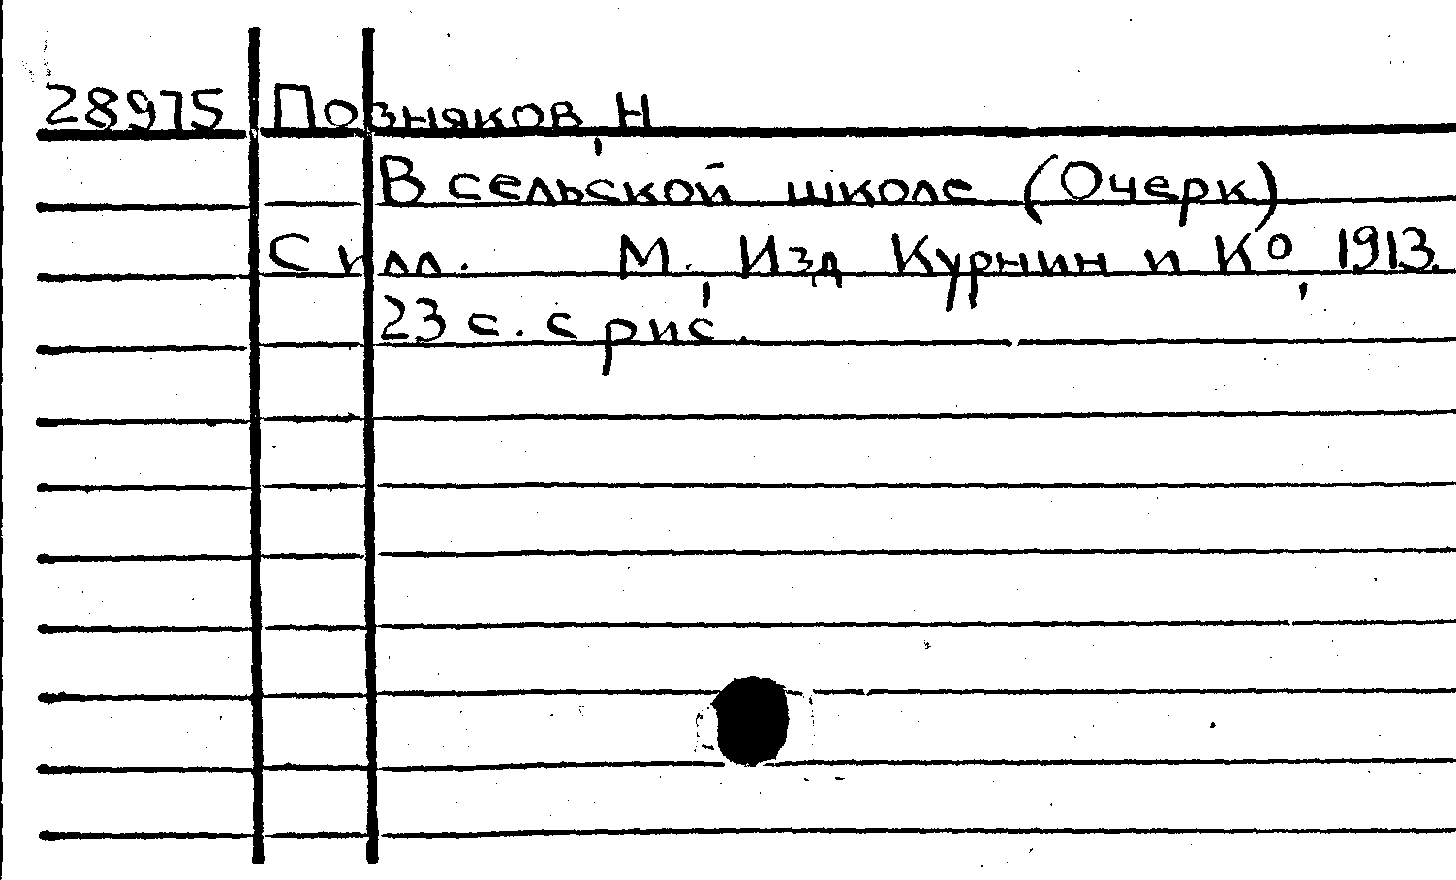 28975 Позняков, Н
В сельской школе (Очерк)
С илл. М., Изд Курнин и Кº, 1913.
23 с. с рис.